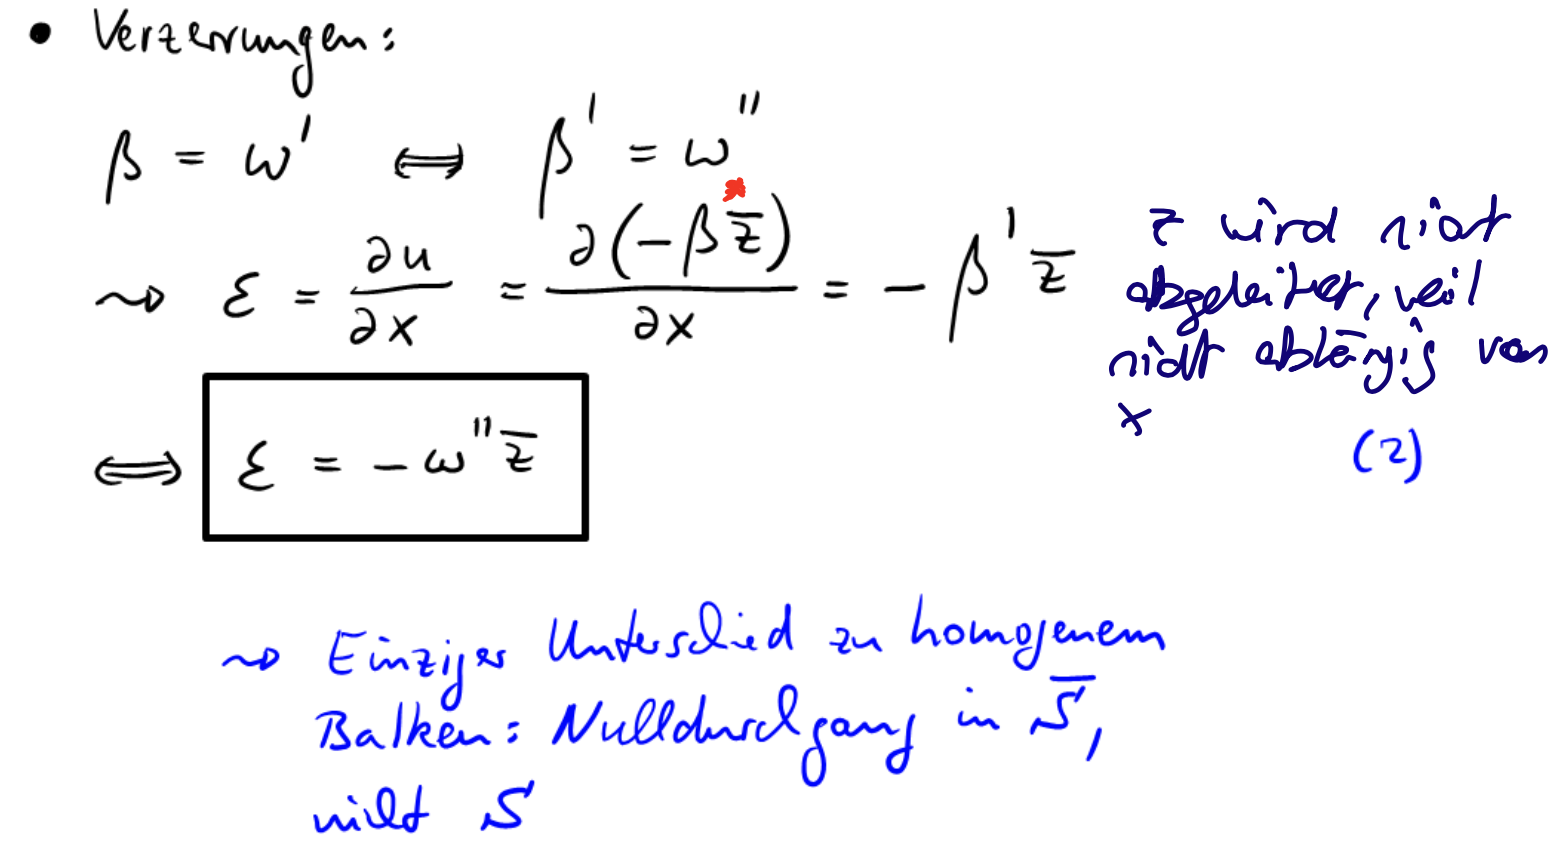 • Verzerrungen:
β = ω' ⟺ β' = ω''
⇝ ε = ∂u/∂x = ∂(-β z̄)/∂x = -β' z̄
z wird nicht
abgeleitet, weil
nicht abhängig von
x
⟺ ε = -ω'' z̄
(2)
⇝ Einziger Unterschied zu homogenem
Balken: Nulldurchgang in S̄,
nicht S